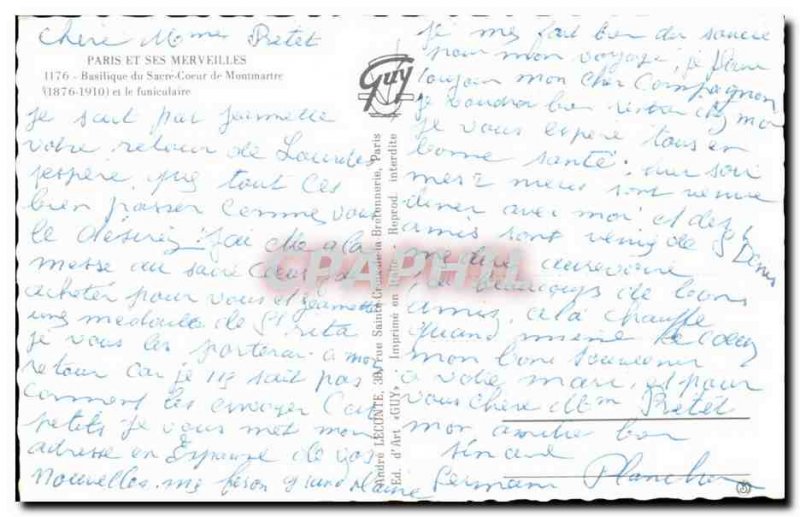 Chere Mmes Pretet
PARIS ET SES MERVEILLES
1176 - Basilique du Sacre-Coeur de Montmartre
(1876-1910) et le funiculaire
je sait par Jeannette
votre retour de Lourdes
jespére que tout ces
bien passer comme vous
le désiriez j'ai été a la
messe au sacre Coeur
acheter pour vous et Jeannette
une medaille de St rita
je vous les porterai a mon
retour car je ne sait pas
comment les envoyer
petits je vous met mon
adresse en Espagne de vos
nouvelles me feron grand plaisir
Guy
André LECONTE, 38, rue Sainte-Croix-de-la-Bretonnerie, Paris
Ed. d'Art «GUY» - Imprimé en Italie - Reprod. interdite
CPAPHIL
je me fait bon du
pour mon voyage, je
toujour mon cher Compagnon
je voudrai bien
je vous espere tous en
bonne santé. hier soir
mes 2 sont venue
diner avec moi et des
amis sont venis de St Denis
me dire aurevoire
beaucoups de bons
amis, ça chauffe
quand meme le coeur
mon bons souvenir
a votre mari, et pour
vous chere Mm Pretet
mon amitie bon
sincere
Germain Planchon